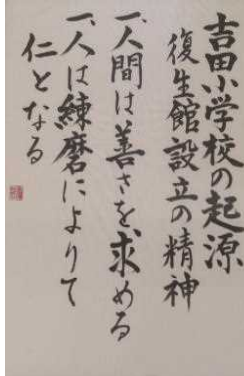 吉田小学校の起源
復生館設立の精神
一、人間は善さを求める
一、人は練磨によりて
仁となる